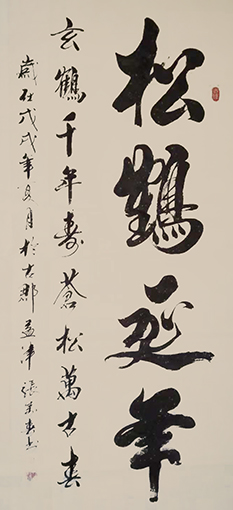 松鹤延年
玄鶴千年壽蒼松萬古春
歲在戊戌年夏月於古郡益津張